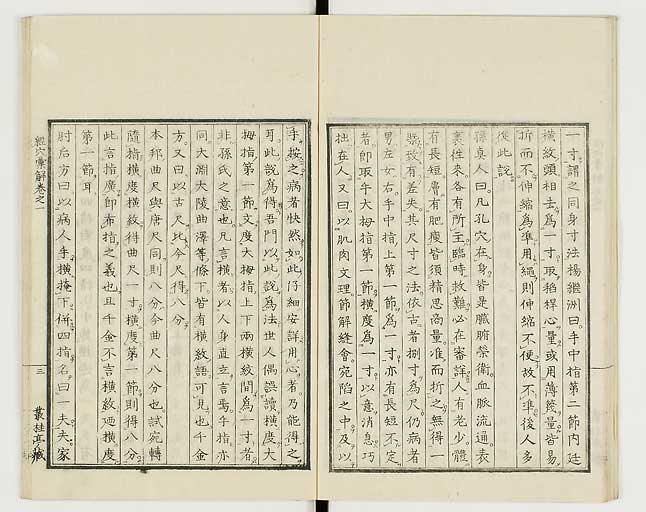 一寸謂之同身寸法楊繼洲曰手中指第二節內廷
橫紋頭相去爲一寸取稻稈心量或用薄篾量皆易
折而不伸縮爲準用繩則伸縮不便故不準後人多
從此說
孫眞人曰凡孔穴在身皆是臟腑榮衛血脈流通表
裏往來各有所主臨時救難必在審詳人有老少體
有長短膚有肥瘦皆須精思商量准而折之無得一
縣致有差失其尺寸之法依古者捌寸爲尺仍病者
男左女右手中指上第一節爲一寸亦有長短不定
者卽取手大拇指第一節橫度爲一寸以意消息巧
拙在人又曰以肌肉文理節解縫會宛陷之中及以
手按之病者快然如此仔細安詳用心者乃能得之
耳此說爲得吾門以此說爲法世人偶誤讀橫度大
拇指第一節文度大拇指上下兩橫紋間爲一寸者
非孫氏之意也凡言橫者以人身直立言焉手指亦
同大淵大陵曲澤等條下皆有橫紋語可見也千金
方又曰以古尺比今尺得八分
本邦曲尺與唐尺同則八分今曲尺八分也試宛轉
隨指橫度橫紋得曲尺一寸橫度第一節則得八分
此言指廣卽布指之義也且千金不言橫紋廼橫度
第一節耳
肘后方曰以病人手橫掩下倂四指名曰一夫夫家
經穴彙解卷之一
三
叢桂亭藏